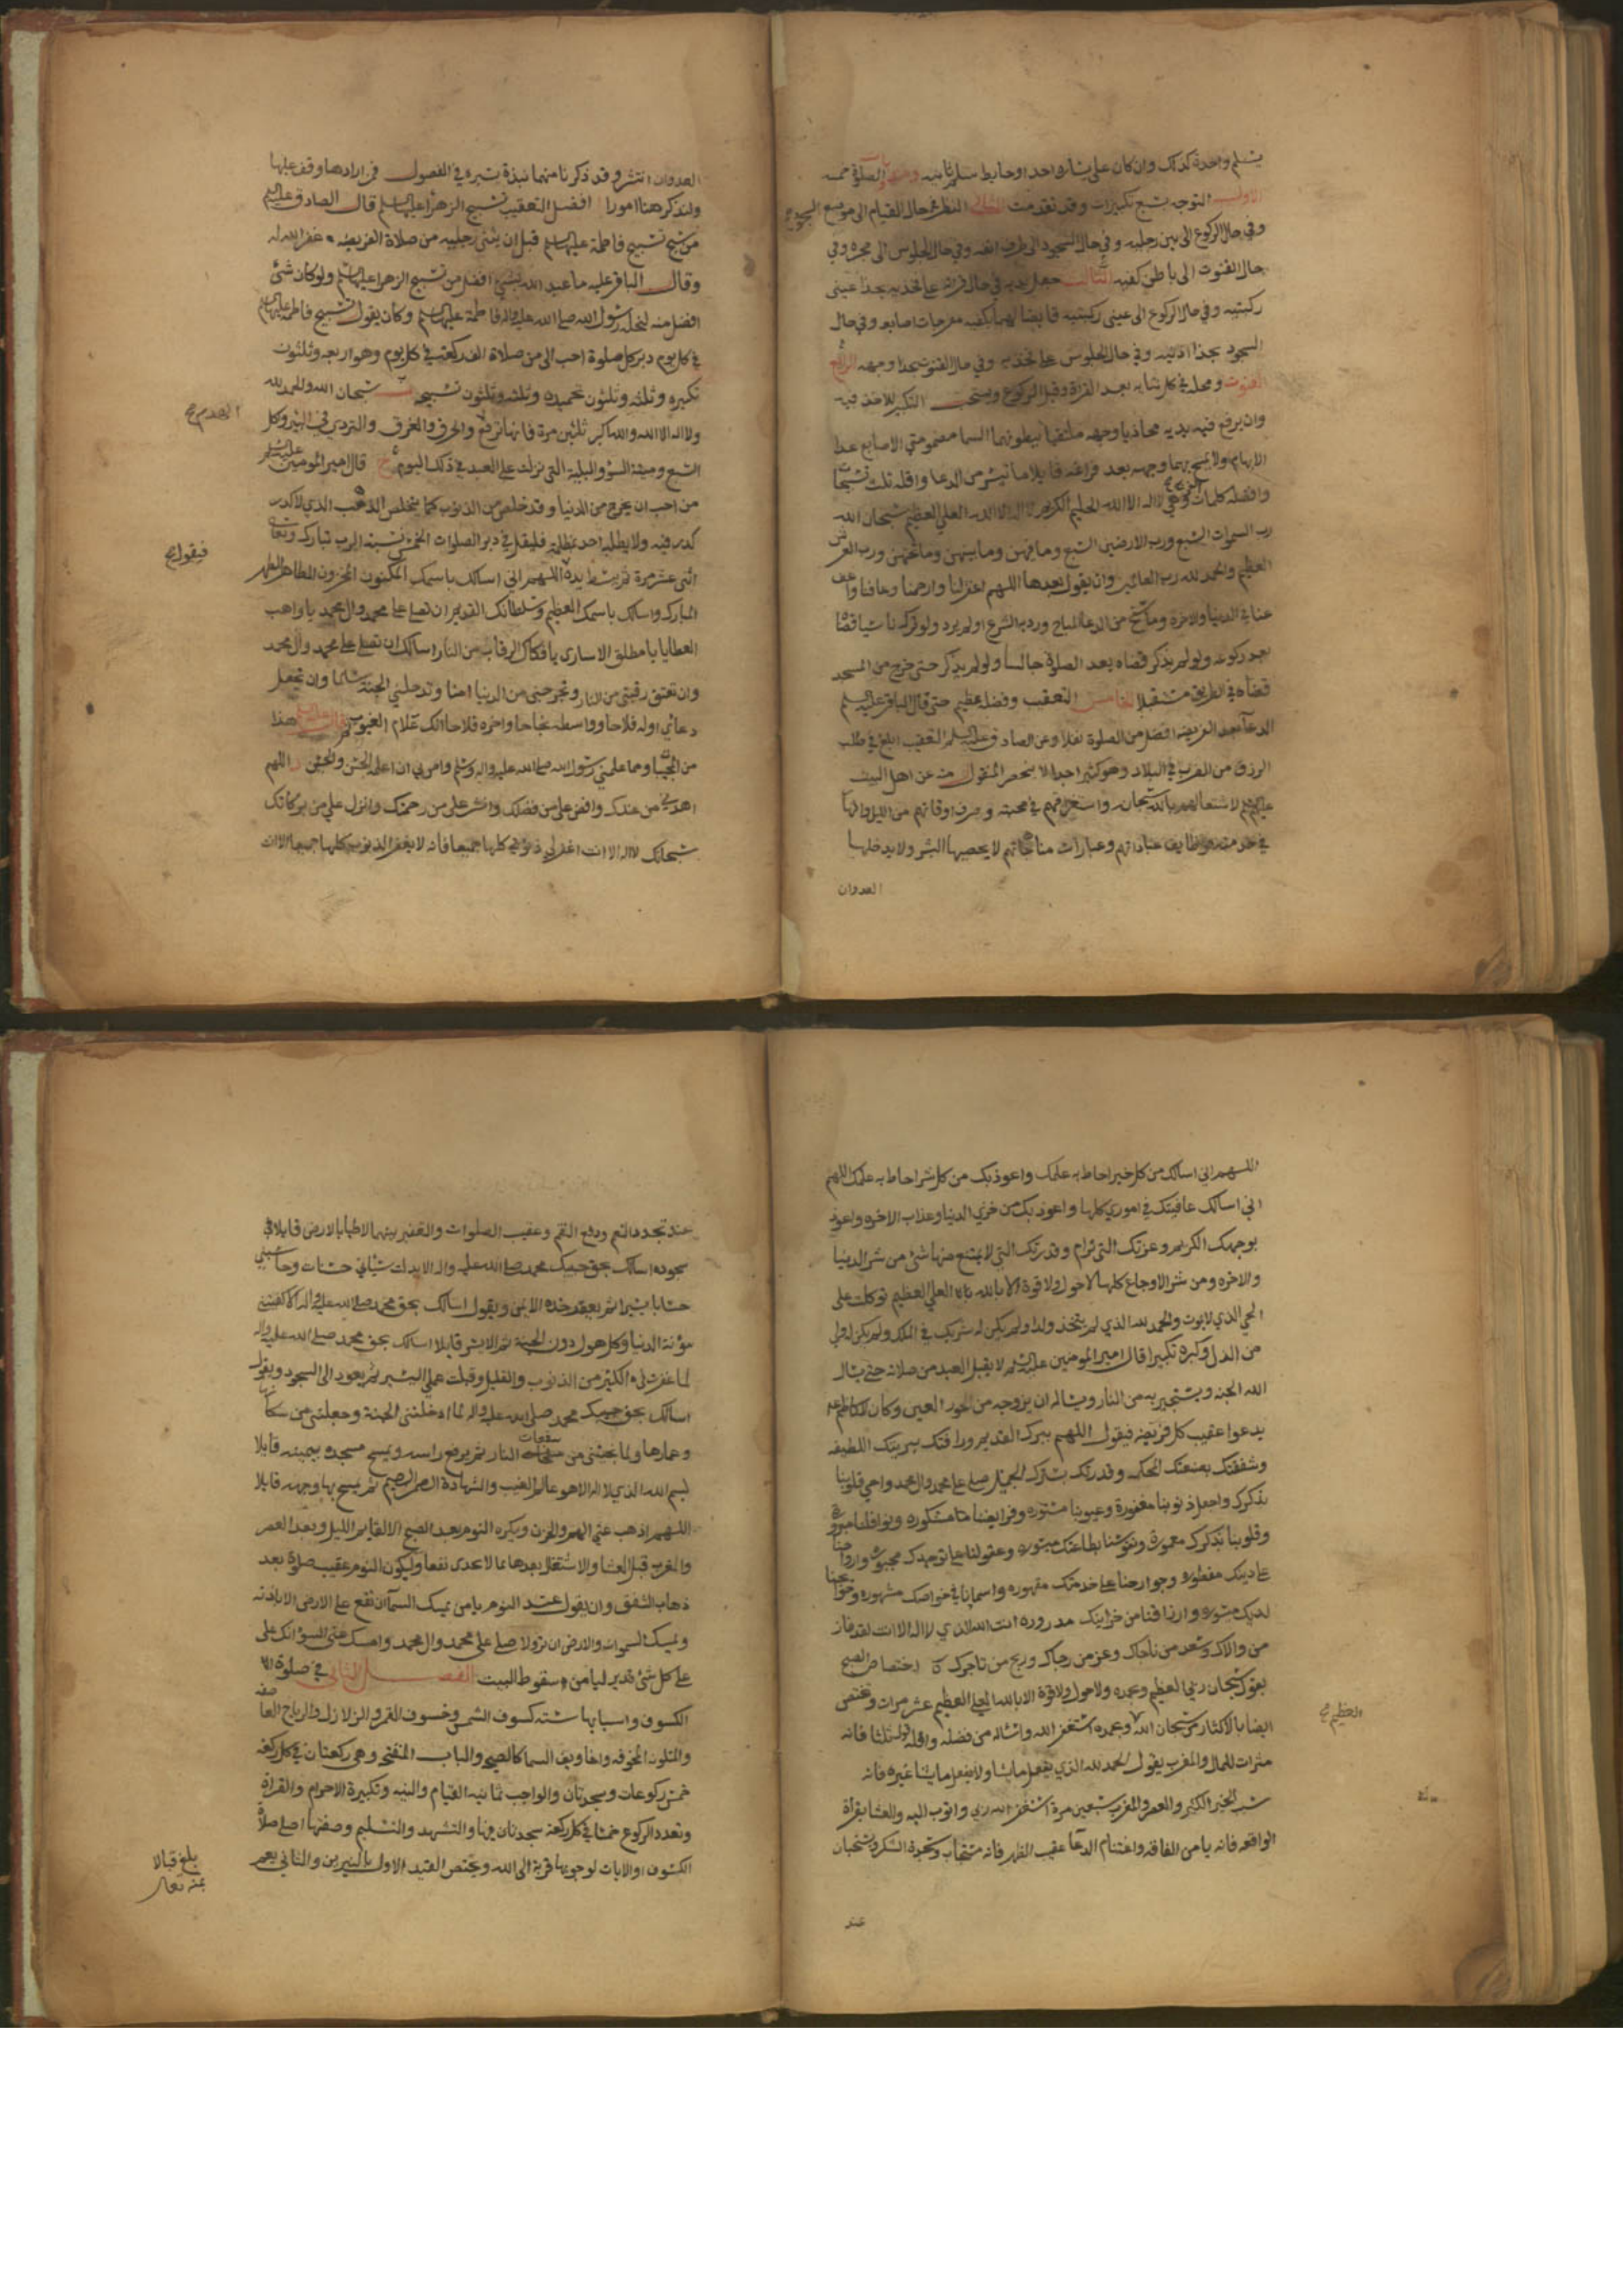 يسلم واحدة كذلك وان كان على يساره احد او حايط سلم ثانيه الصلوة خمسه
الاول التوجه بسبع تكبيرات وقد تقدمت الثاني النظر في حال القيام الى موضع السجود
وفي حال الركوع الى بين رجليه وفي حال السجود الى طرف انفه وفي حال الجلوس الى حجره وفي
حال القنوت الى باطن كفيه الثالث جعل يديه في حال قرائته على فخذيه بحذا عيني
ركبتيه وفي حال الركوع الى عيني ركبتيه قابضا لهما بكفيه مفرجات اصابعه وفي حال
السجود بحذا اذنيه وفي حال الجلوس على فخذيه وفي حال القنوت بحذا وجهه الرابع
القنوت ومحله في كل ثنايه بعد القراة وقبل الركوع ويستحب التكبير للاخذ فيه
وان يرفع فيه يديه محاذيا وجهه ملتقيا ببطونهما السما مضمومتي الاصابع عدا
الابهام ولا يمسح بهما وجهه بعد فراغه قايلا ما تيسر من الدعا واقله ثلث تسبيحات
وافضله كلمات الفرج وهي لا اله الا الله الحليم الكريم لا اله الا الله العلي العظيم سبحان الله
رب السموات السبع ورب الارضين السبع وما فيهن وما بينهن وما تحتهن ورب العرش
العظيم والحمد لله رب العالمين وان يقول بعدها اللهم اغفر لنا وارحمنا وعافنا واعف
عنا في الدنيا والاخرة وما سنح من الدعا المباح ورد به الشرع او لم يرد ولو تركه ناسيا قضاه
بعد ركوعه ولو لم يذكر قضاه بعد الصلوة جالسا ولو لم يذكر حتى خرج من المسجد
قضاه في الطريق مستقبلا الخامس التعقيب وفضله عظيم حتى قال الباقر عليه السلم
الدعا بعد الفريضه افضل من الصلوة نفلا وعن الصادق عليه السلم التعقيب ابلغ في طلب
الرزق من الضرب في البلاد وهو كثير جدا لا ينحصر المنقول منه عن اهل البيت
عليهم السلم لاشتغالهم بالله سبحانه واستغراقهم في محبته وصرف اوقاتهم من الليل والنهار
في خدمته ووظايف عباداتهم وعبارات مناجاتهم لا يحصيها البشر ولا يدخلها
العدوان
العدوان انتشر وقد ذكرنا منها نبذة يسيره في الفصول فمن ارادها وقف عليها
ولنذكر هنا امورا افضل التعقيب تسبيح الزهرا عليها السلم قال الصادق عليه السلم
من سبح تسبيح فاطمة عليها السلم قبل ان يثني رجليه من صلاة الفريضه غفر الله له
وقال الباقر عليه ما عبد الله بشي افضل من تسبيح الزهرا عليها السلم ولو كان شئ
افضل منه لنحله رسول الله صلى الله عليه واله فاطمة عليها السلم وكان يقول تسبيح فاطمه عليها السلم
في كل يوم دبر كل صلوة احب الي من صلاة الف ركعة في كل يوم وهو اربعه وثلثون
تكبيره وثلثه وثلثون تحميده وثلثه وثلثون تسبيحه سبحان الله والحمد لله
ولا اله الا الله والله اكبر ثلثين مرة فانها ترفع والحرق والغرق والتردي في البير وكل
الهدم صح
السبع وميتة السوؤ والبلية التي نزلت على العبد في ذلك اليوم قال امير المومنين عليه السلم
من احب ان يخرج من الدنيا وقد خلص من الذنوب كما يتخلص الذهب الذي لا كدر
كدر فيه ولا يطلبه احد بمظلمة فليقل في دبر الصلوات الخمس نسبة الرب تبارك وتعالى
فيقول صح
اثنى عشر مرة ثم يبسط يده اللهم اني اسالك باسمك المكنون المخزون الطاهر الطهر
المبارك واسالك باسمك العظيم وسلطانك القديم ان تصلي على محمد وال محمد يا واهب
العطايا يا مطلق الاسارى يا فكاك الرقاب من النار اسالك ان تصلي على محمد وال محمد
وان تعتق رقبتي من النار وتخرجني من الدنيا امنا وتدخلني الجنة سالما وان تجعل
دعائي اوله فلاحا واوسطه نجاحا واخره فلاحا انك علام الغيوب هذا
من المخبيات مما علمني رسول الله صلى الله عليه واله وسلم وامرني ان اعلمه الحسن والحسين اللهم
اهدني من عندك وافض علي من فضلك وانشر علي من رحمتك وانزل علي من بركاتك
سبحانك لا اله الا انت اغفر لي ذنوبي كلها جميعا فانه لا يغفر الذنوب كلها جميعا الا انت
اللهم اني اسالك من كل خير احاط به علمك واعوذ بك من كل شر احاط به علمك اللهم
اني اسالك عافيتك في اموري كلها واعوذ بك من خزي الدنيا وعذاب الاخره واعوذ
بوجهك الكريم وعزتك التي لا ترام وقدرتك التي لا يمتنع منها شئ من شر الدنيا
والاخره ومن شر الاوجاع كلها لا حول ولا قوة الا بالله العلي العظيم توكلت على
الحي الذي لا يموت والحمد لله الذي لم يتخذ ولدا ولم يكن له شريك في الملك ولم يكن له ولي
من الذل وكبره تكبيرا قال امير المومنين عليه السلم لا يقبل العبد من صلاته حتى يسال
الله الجنه ويستجير به من النار ويساله ان يزوجه من الحور العين وكان الكاظم عليه السلم
يدعوا عقيب كل فريضه فيقول اللهم ببرك القديم ورافتك ببريتك اللطيفه
وشفقتك بصنعتك المحكمه وقدرتك بسترك الجميل صل على محمد وال محمد واحي قلوبنا
بذكرك واجعل ذنوبنا مغفورة وعيوبنا مستوره وفرايضنا مشكوره ونوافلنا مبروره
وقلوبنا بذكرك معمورة ونفوسنا بطاعتك مسروره وعقولنا على توحيدك مجبوره وارواحنا
على دينك مفطوره وجوارحنا على خدمتك مقهوره واسمائنا في خواصك مشهوره وحوايجنا
لديك ميسوره وارزاقنا من خزاينك مدروره انت الله الذي لا اله الا انت لقد فاز
من والاك وسعد من ناجاك وعز من رجاك وربح من تاجرك اختصاص الصبح
بقول سبحان ربي العظيم وبحمده ولا حول ولا قوة الا بالله العلي العظيم عشر مرات وتختص
ايضا بالاكثار من سبحان الله وبحمده استغفر الله واساله من فضله واقله ثلثا فانه
العظيم صح
مثرات للمال والمغرب بقول الحمد لله الذي يفعل ما يشا ولا يفعل ما يشا غيره فانه
سبب الخير الكثير والعصر والمغرب سبعين مرة استغفر الله ربي واتوب اليه والعشا بقراة
الواقعه فانه يامن الفاقه واغتنام الدعا عقيب الظهر فانه مستجاب وسجدة الشكر يستحبان
عند
عند تجدد النعم ودفع النقم وعقيب الصلوات والتعفير بينهما بالارض قايلا في
سجوده اسالك بحق حبيبك محمد صلى الله عليه واله الا بدلت سيئاتي حسنات وحاسبتني
حسابا يسيرا ثم يعفر خده الايمن ويقول اسالك بحق محمد صلى الله عليه واله الا كفيتني
مؤنة الدنيا وكل هول دون الجنة ثم الايسر قايلا اسالك بحق محمد صلى الله عليه واله
لما غفرت لي الكثير من الذنوب والقليل وقبلت عملي اليسير ثم يعود الى السجود ويقول
اسالك بحق حبيبك محمد صلى الله عليه واله لما ادخلتني الجنة وجعلتني من سكانها
وعمارها ولما نجيتني من سفعات النار ثم يرفع راسه ويمسح مسجده بيمينه قايلا
بسم الله الذي لا اله الا هو عالم الغيب والشهادة الرحمن الرحيم ثم يمسح بها وجهه قايلا
اللهم اذهب عني الهم والحزن ويكره النوم بعد الصبح الا لقايم الليل وبعد العصر
والمغرب قبل العشا والاشتغال بعدها بما لا يجدي نفعا وليكون النوم عقيب صلوة بعد
ذهاب الشفق وان يقول عند النوم يا من يمسك السما ان تقع على الارض الا باذنه
ويمسك السموات والارض ان تزولا صل على محمد وال محمد وامسك عني السوؤ انك على
على كل شئ قدير ليامن سقوط البيت الفصل الثاني في صلوة
الكسوف واسبابها ستة كسوف الشمس وخسوف القمر والزلازل والرياح العاصفه
والمتلونه المخوفه واخاويف السما كالصيحه والباب المنفتح وهي ركعتان في كل ركعه
خمس ركوعات وسجدتان والواجب ثمانيه القيام والنيه وتكبيرة الاحرام والقراة
وتعدد الركوع خمسا في كل ركعة سجدتان منها والتشهد والتسليم وصفتها اصلي صلاة
الكسوف او الايات لوجوبها قربة الى الله ويختص القيد الاول بالنيرين والثاني يعم
بلغ قبالا
بمنه تعالى